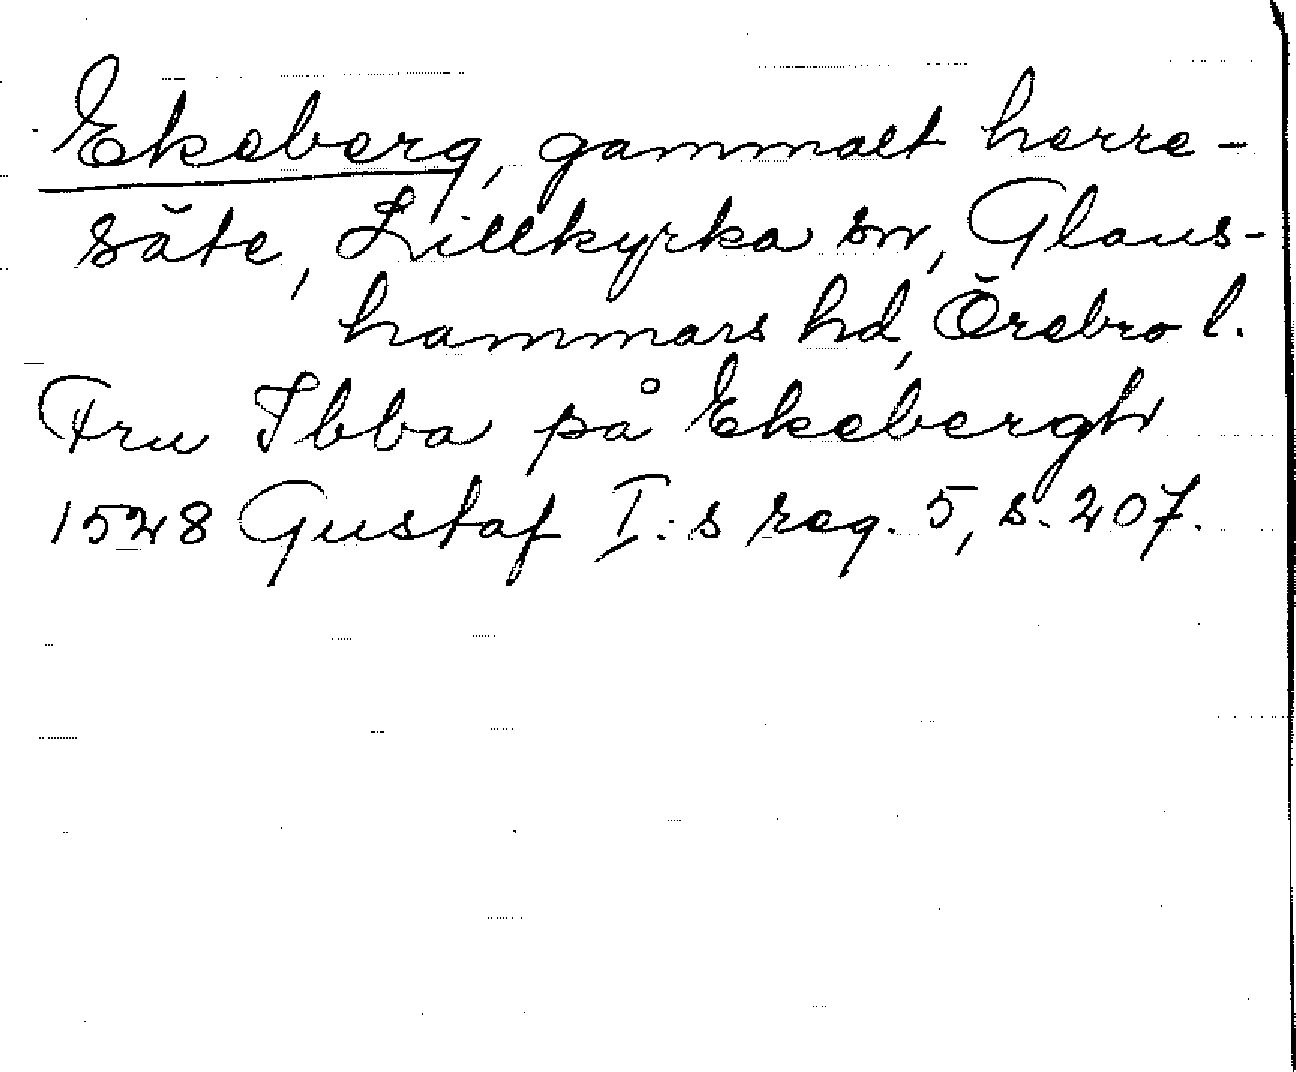 Ekeberg, gammalt herre-
säte, Lillkyrka sn, Glans-
hammars hd, Örebro l.
Fru Ibba på Ekebergh
1528 Gustaf I:s reg. 5, s. 207.